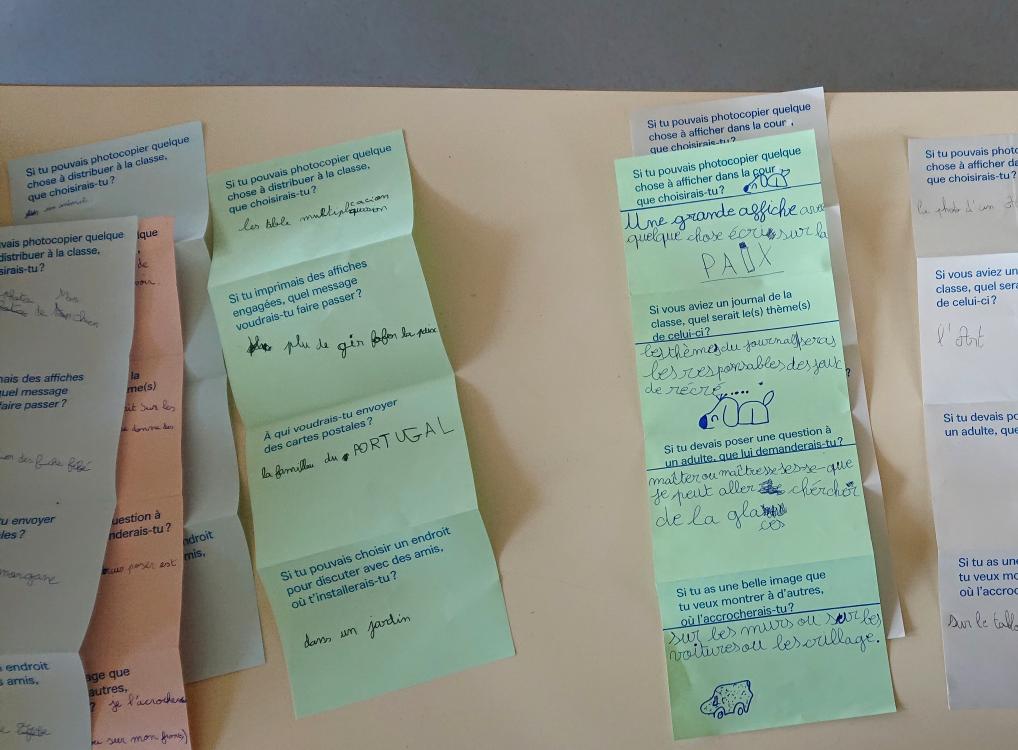 Si tu pouvais photocopier quelque
chose à distribuer à la classe,
que choisirais-tu ?
vais photocopier quelque
distribuer à la classe,
sirais-tu ?
photo
de
chien
nais des affiches
uel message
faire passer ?
u envoyer
les ?
endroit
s amis,
que
de
la
me(s)
sur les
donne des
uestion à
nderais-tu ?
poser est
age que
autres,
? je l'acroche
sur mon front)
ndroit
mis,
Si tu pouvais photocopier quelque
chose à distribuer à la classe,
que choisirais-tu ?
les table multiplicacion
Si tu imprimais des affiches
engagées, quel message
voudrais-tu faire passer ?
plu de gir fafon la paix
À qui voudrais-tu envoyer
des cartes postales ?
la familleu du PORTUGAL
Si tu pouvais choisir un endroit
pour discuter avec des amis,
où t'installerais-tu ?
dans un jardin
Si tu pouvais photocopier quelque
chose à afficher dans la cour,
que choisirais-tu ?
Si tu pouvais photocopier quelque
chose à afficher dans la cour
que choisirais-tu ?
Une grande affiche avec
quelque chose écri sur la
PAIX
Si vous aviez un journal de la
classe, quel serait le(s) thème(s)
de celui-ci ?
les thèmes du journal seras
les responsables des jeux
de récré
Si tu devais poser une question à
un adulte, que lui demanderais-tu ?
maîter ou maîtresse ses-se-que
je peut aller chércher
de la gla
ces
Si tu as une belle image que
tu veux montrer à d'autres,
où l'accrocherais-tu ?
sur les murs ou sur les
voitures ou les villages.
?
Si tu pouvais photoc
chose à afficher da
que choisirais-tu ?
la photo d'un
Si vous aviez un
classe, quel sera
de celui-ci ?
l'Art
Si tu devais po
un adulte, que
Si tu as une
tu veux mo
où l'accroc
sur le tabl